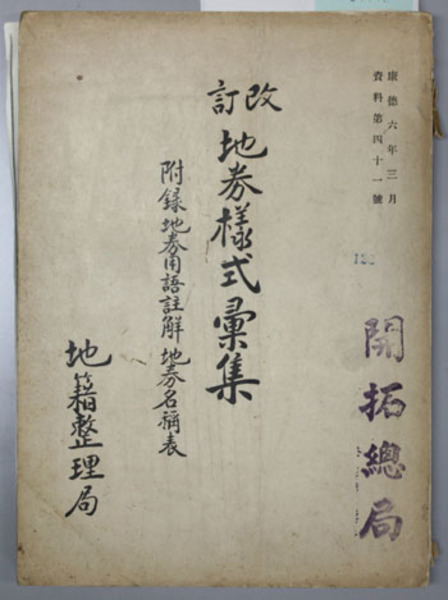 康德六年三月
資料第四十一號
開拓總局
改訂
地券樣式彙集
附録 地券用語註解 地券名稱表
地籍整理局